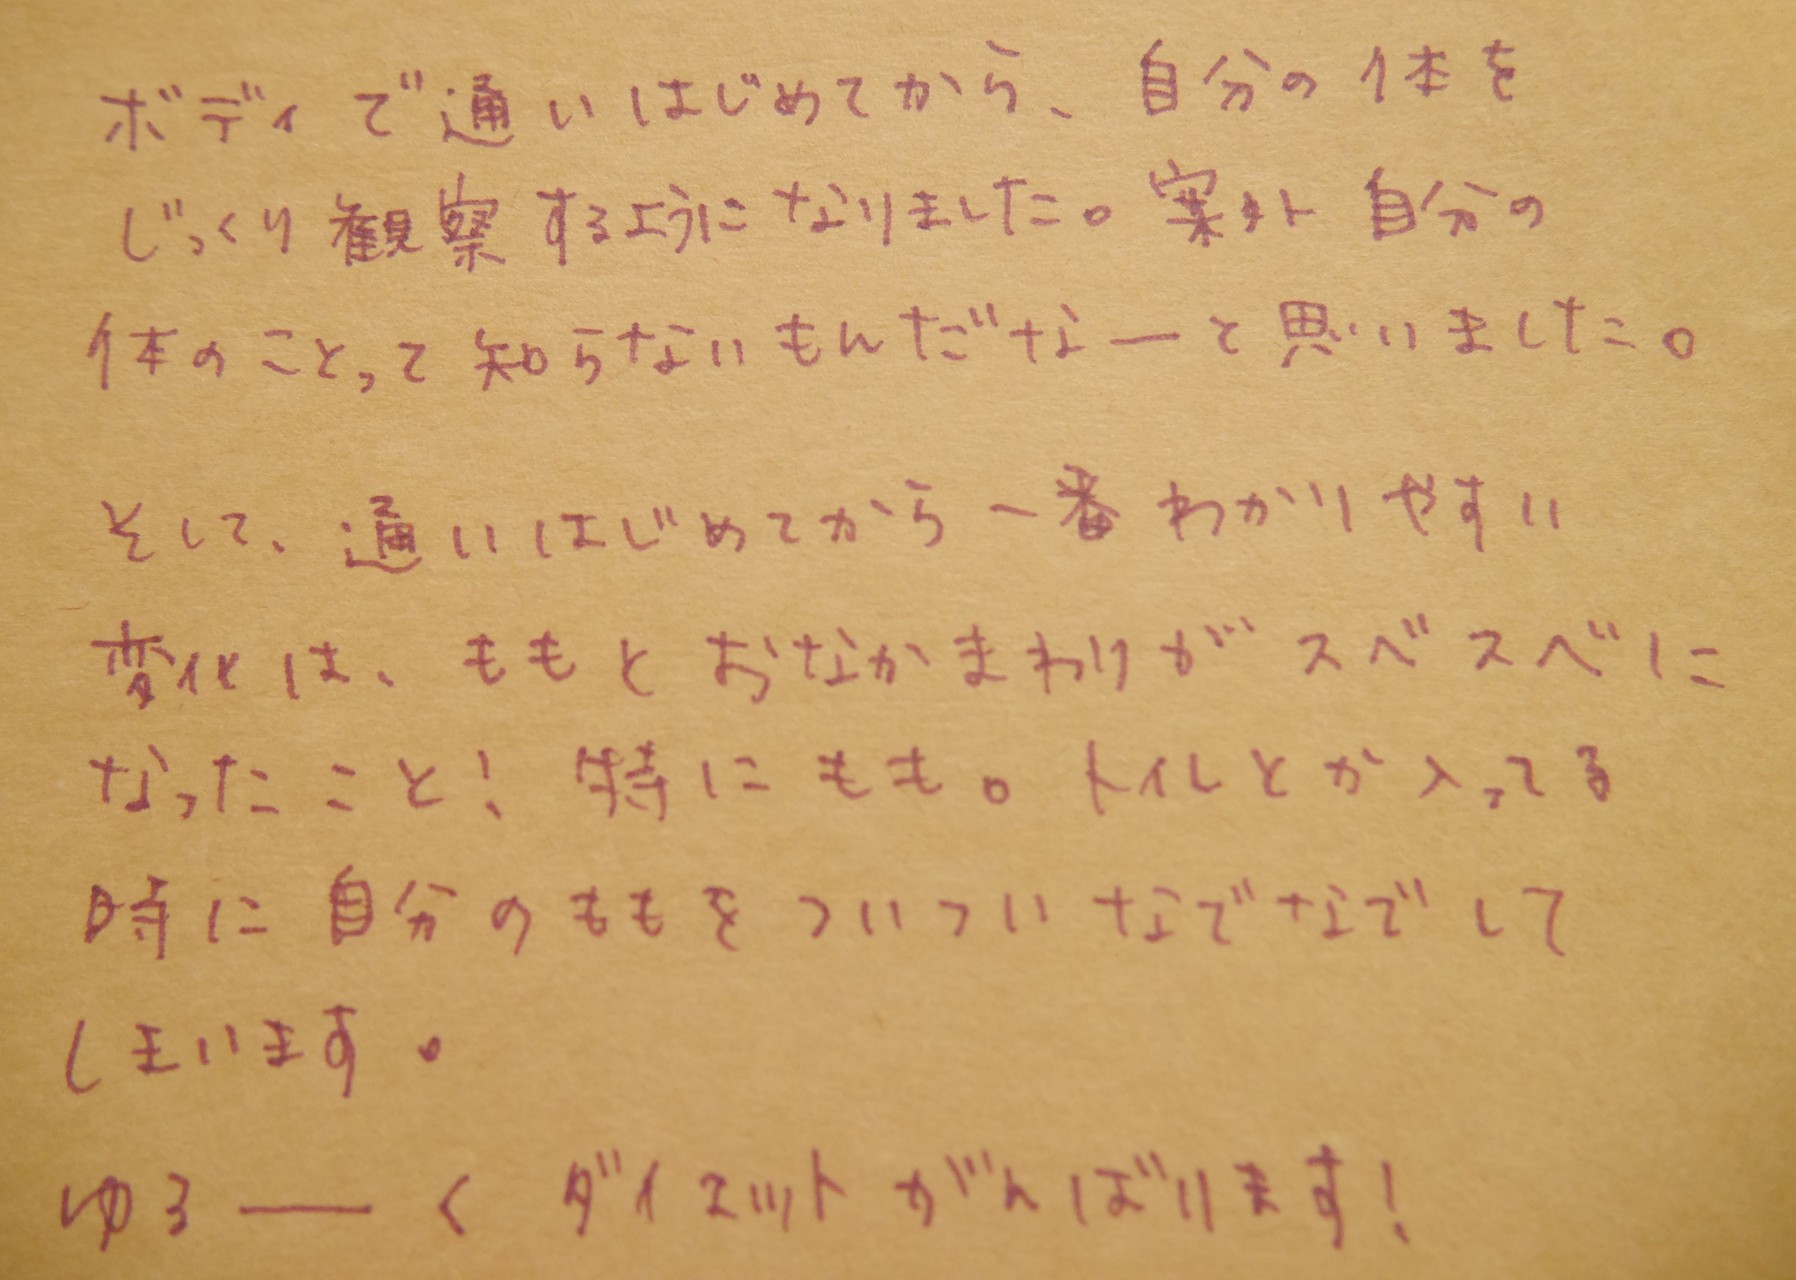 ボディで通いはじめてから、自分の体を
じっくり観察するようになりました。案外自分の
体のことって知らないもんだなーと思いました。
そして、通いはじめてから一番わかりやすい
変化は、ももとおなかまわりがスベスベに
なったこと！特にもも。トイレとか入ってる
時に自分のももをついついなでなでして
しまいます。
ゆるーくダイエットがんばります！